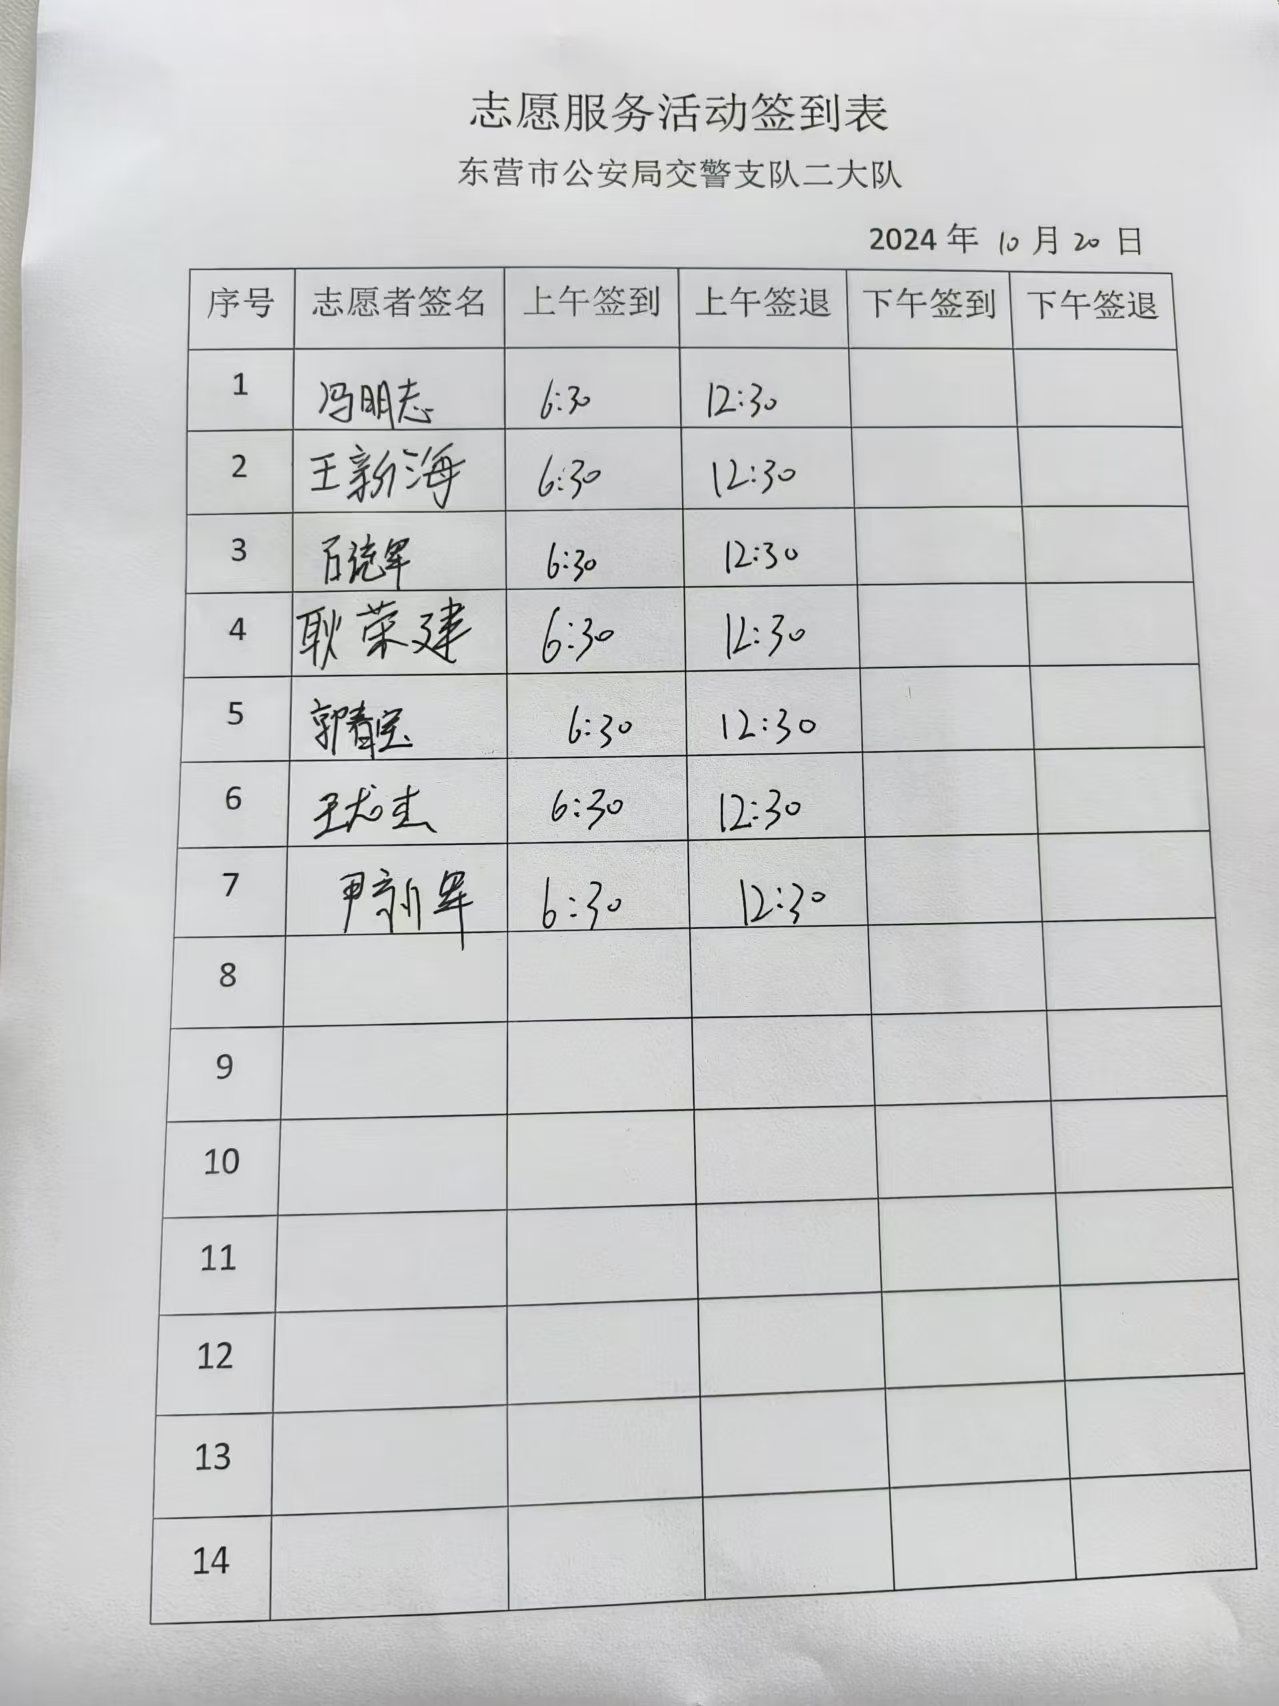 志愿服务活动签到表
东营市公安局交警支队二大队
2024 年 10 月 20 日
序号 志愿者签名 上午签到 上午签退 下午签到 下午签退
1 冯明志 6:30 12:30
2 王新海 6:30 12:30
3 石统军 6:30 12:30
4 耿荣建 6:30 12:30
5 郭春宝 6:30 12:30
6 王龙杰 6:30 12:30
7 尹新军 6:30 12:30
8
9
10
11
12
13
14